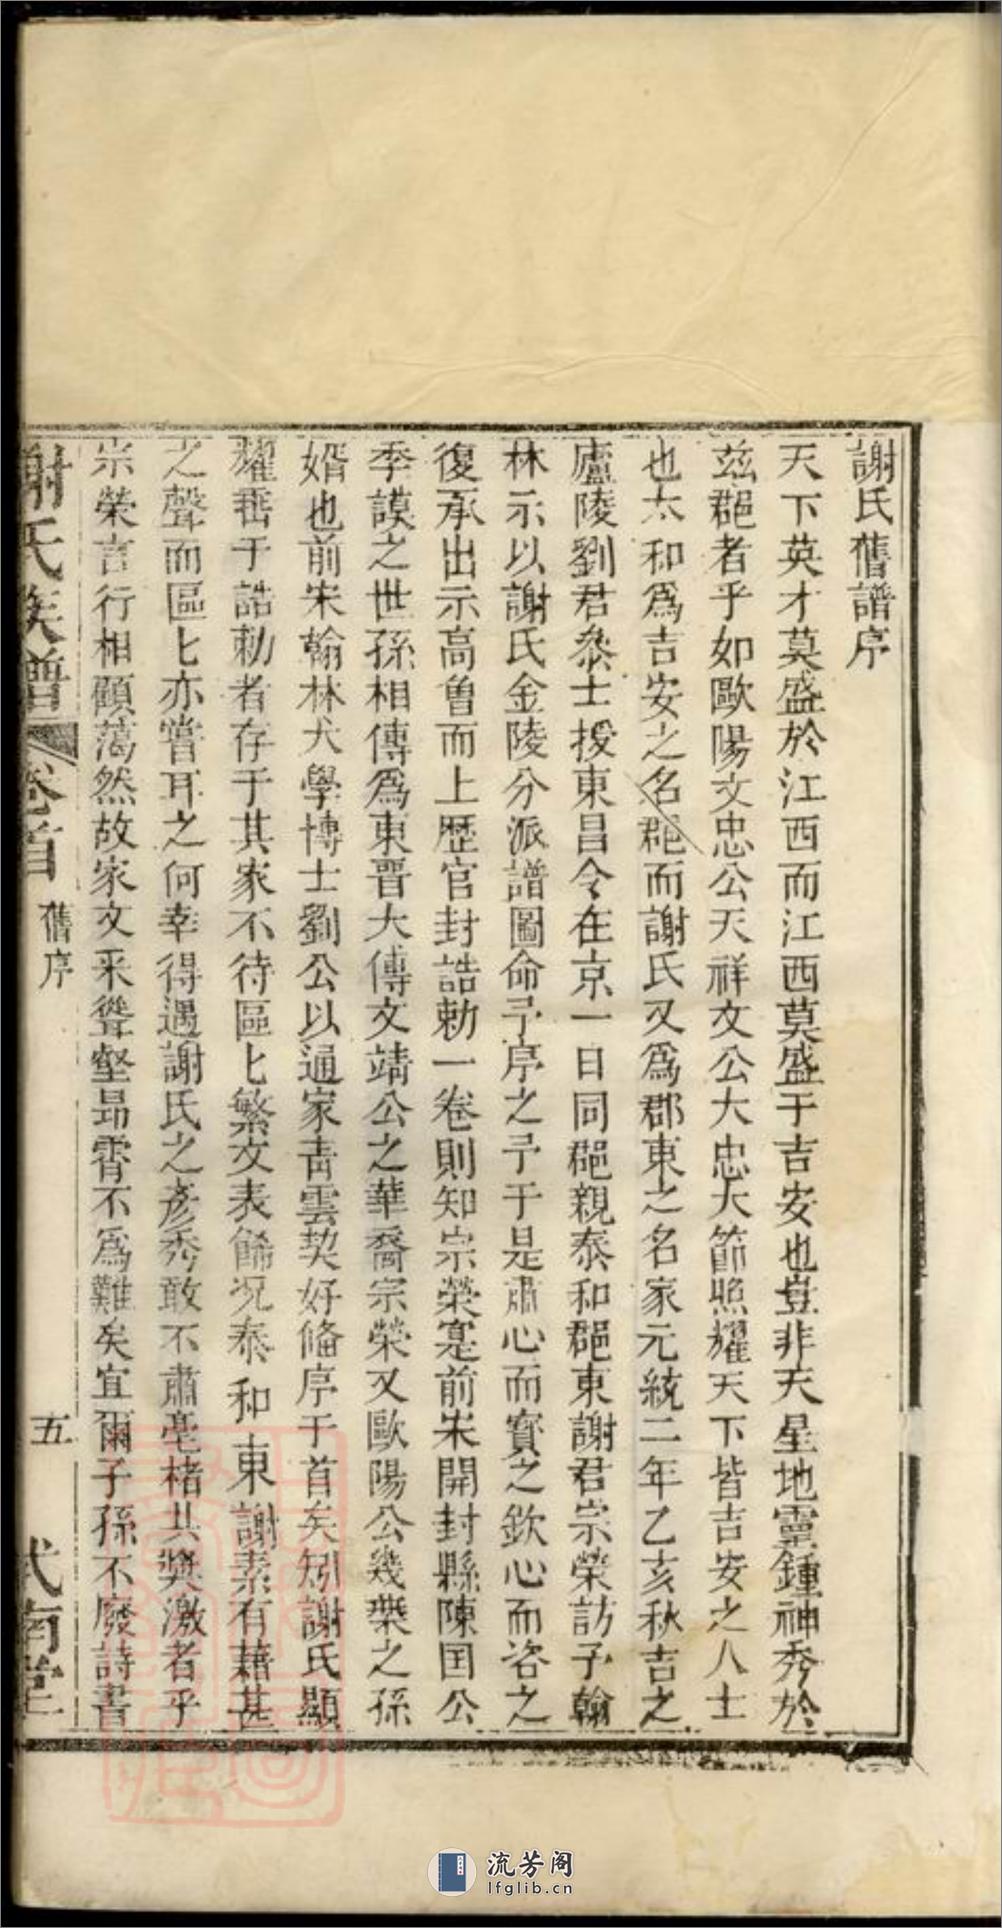 謝氏舊譜序
天下英才莫盛於江西而江西莫盛于吉安也豈非天星地靈鍾神秀於
茲郡者乎如歐陽文忠公天祥文公大忠大節照耀天下皆吉安之人士
也太和爲吉安之名郡而謝氏又爲郡東之名家元統二年乙亥秋吉之
廬陵劉君叅士授東昌令在京一日同郡親泰和郡東謝君宗榮訪予翰
林示以謝氏金陵分派譜圖命予序之予于是肅心而寶之欽心而咨之
復承出示高曾而上歷官封誥勅一卷則知宗榮寔前宋開封縣陳国公
季謨之世孫相傳爲東晋大傅文靖公之華裔宗榮又歐陽公幾葉之孫
婿也前宋翰林大學博士劉公以通家青雲契好俻序于首矣矧謝氏顯
耀垂于誥勅者存于其家不待區匕繁文表餙况泰和東謝素有藉甚
之聲而區匕亦嘗耳之何幸得遇謝氏之彥秀敢不肅毫楮共獎激者乎
宗榮言行相顧藹然故家文采聳壑昻霄不爲難矣宜爾子孫不廢詩書
謝氏族譜 卷首 舊序 五 式南堂
流芳阁
lfglib.cn